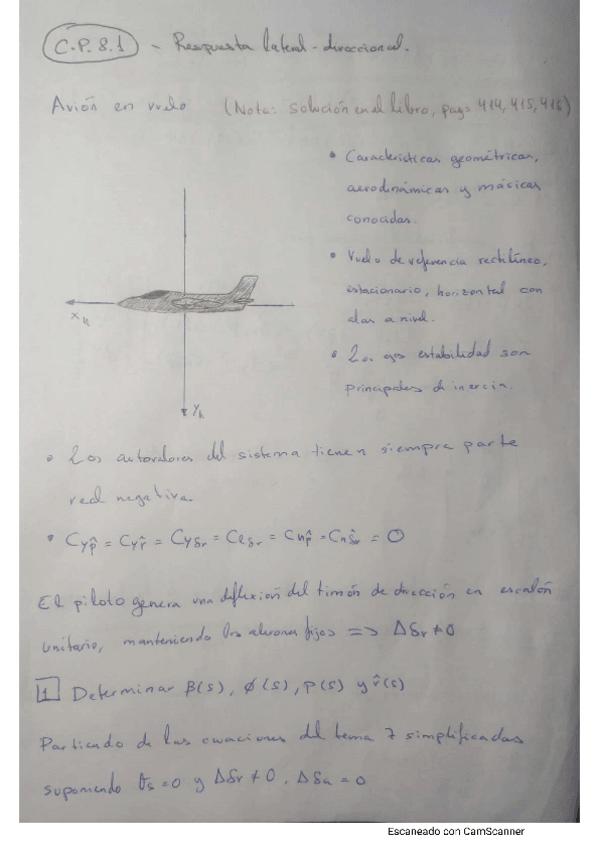 C.P. 8.1 - Respuesta lateral-direccional.
Avión en vuelo (Nota: solución en el libro, pags 414, 415, 416)
• Características geométricas,
aerodinámicas y másicas
conocidas.
• Vuelo de referencia rectilíneo,
estacionario, horizontal con
alas a nivel.
• Los ejes estabilidad son
principales de inercia.
x_h
y_h
• Los autovalores del sistema tienen siempre parte
real negativa.
• Cyp̂ = Cyr̂ = Cyδr = Clδr = Cnp̂ = Cnδ̂r = 0
El piloto genera una deflexión del timón de dirección en escalón
unitario, manteniendo los alerones fijos => Δδr ≠ 0
1 Determinar β(s), φ(s), p(s) y r̂(s)
Partiendo de las ecuaciones del tema 7 simplificadas
suponiendo θs = 0 y Δδr ≠ 0, Δδa = 0
Escaneado con CamScanner